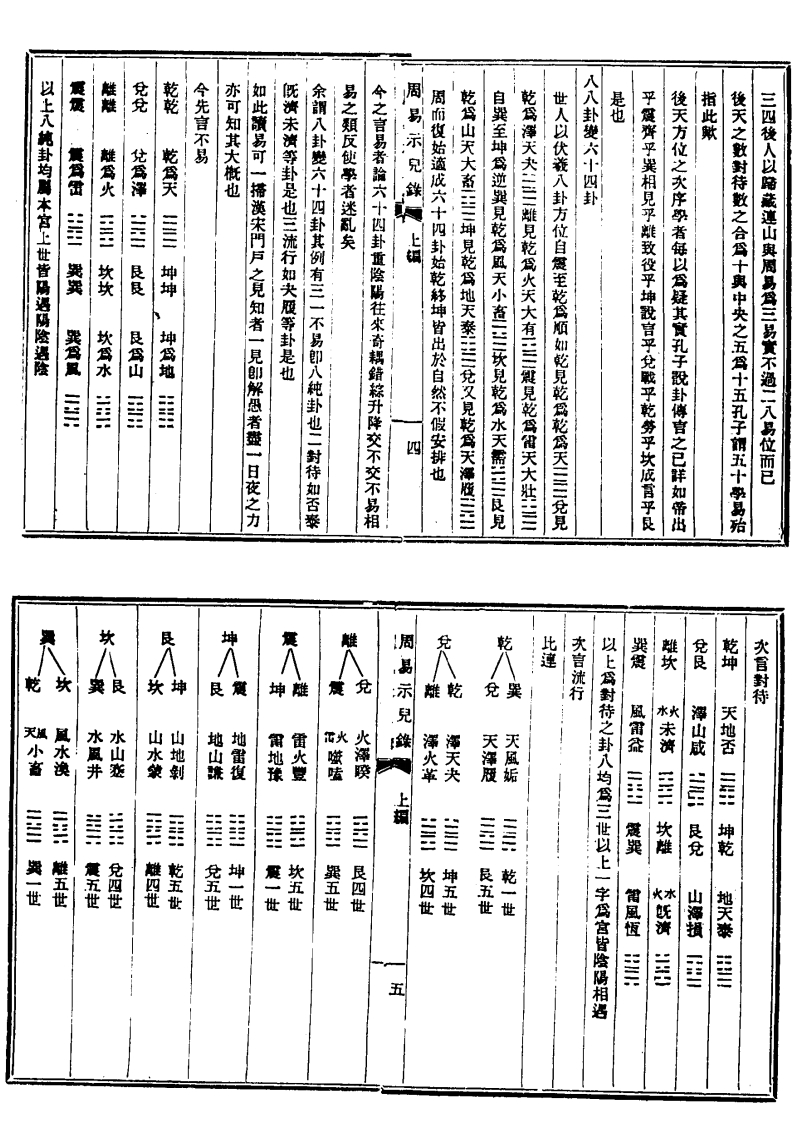 三四後人以歸藏連山與周易爲三易實不過二八易位而已
後天之數對待數之合爲十與中央之五爲十五孔子謂五十學易殆
指此歟
後天方位之次序學者每以爲疑其實孔子說卦傳言之已詳如帝出
乎震齊乎巽相見乎離致役乎坤說言乎兌戰乎乾勞乎坎成言乎艮
是也
八八卦變六十四卦
世人以伏羲八卦方位自震至乾爲順如乾見乾爲乾爲天䷀兌見
乾爲澤天夬䷪離見乾爲火天大有䷍震見乾爲雷天大壯䷡
自巽至坤爲逆巽見乾爲風天小畜䷈坎見乾爲水天需䷄艮見
乾爲山天大畜䷙坤見乾爲地天泰䷊兌又見乾爲天澤履䷉
周而復始適成六十四卦始乾終坤皆出於自然不假安排也
周易示兒錄 上編 四
今之言易者論六十四卦重陰陽往來奇耦錯綜升降交不交不易相
易之類反使學者迷亂矣
余謂八卦變六十四卦其例有三一不易卽八純卦也二對待如否泰
旣濟未濟等卦是也三流行如夬履等卦是也
如此讀易可一掃漢宋門戶之見知者一見卽解愚者盡一日夜之力
亦可知其大槪也
今先言不易
乾乾 乾爲天 ䷀ 坤坤 坤爲地 ䷁
兌兌 兌爲澤 ䷹ 艮艮 艮爲山 ䷳
離離 離爲火 ䷝ 坎坎 坎爲水 ䷜
震震 震爲雷 ䷲ 巽巽 巽爲風 ䷸
以上八純卦均屬本宮上世皆陽遇陽陰遇陰
次言對待
乾坤 天地否 ䷋ 坤乾 地天泰 ䷊
兌艮 澤山咸 ䷞ 艮兌 山澤損 ䷨
離坎 火水未濟 ䷿ 坎離 水火旣濟 ䷾
巽震 風雷益 ䷩ 震巽 雷風恆 ䷟
以上爲對待之卦八均爲三世以上一字爲宮皆陰陽相遇
次言流行
比連
乾 巽 天風姤 ䷫ 乾一世
兌 天澤履 ䷉ 艮五世
兌 乾 澤天夬 ䷪ 坤五世
離 澤火革 ䷰ 坎四世
周易示兒錄 上編 五
離 兌 火澤睽 ䷥ 艮四世
震 火雷噬嗑 ䷔ 巽五世
震 離 雷火豐 ䷶ 坎五世
坤 雷地豫 ䷏ 震一世
坤 震 地雷復 ䷗ 坤一世
艮 地山謙 ䷎ 兌五世
艮 坤 山地剝 ䷖ 乾五世
坎 山水蒙 ䷃ 離四世
坎 艮 水山蹇 ䷦ 兌四世
巽 水風井 ䷯ 震五世
巽 坎 風水渙 ䷺ 離五世
乾 風天小畜 ䷈ 巽一世